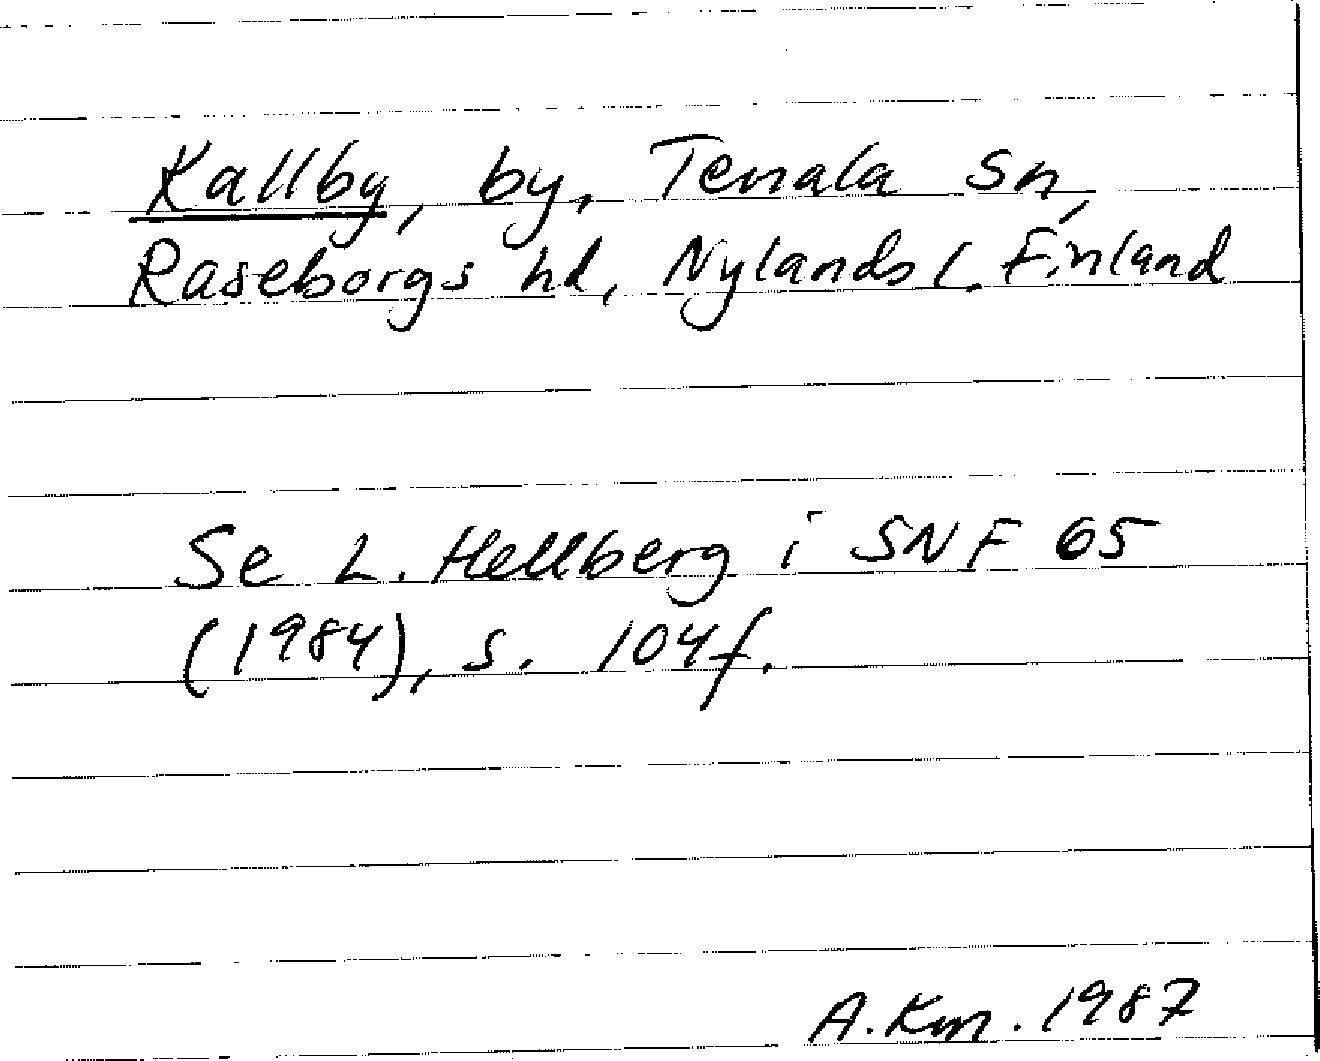 Kallby, by, Tenala sn,
Raseborgs hd, Nylands l. Finland
Se L. Hellberg i SNF 65
(1984), s. 104f.
A.Km. 1987